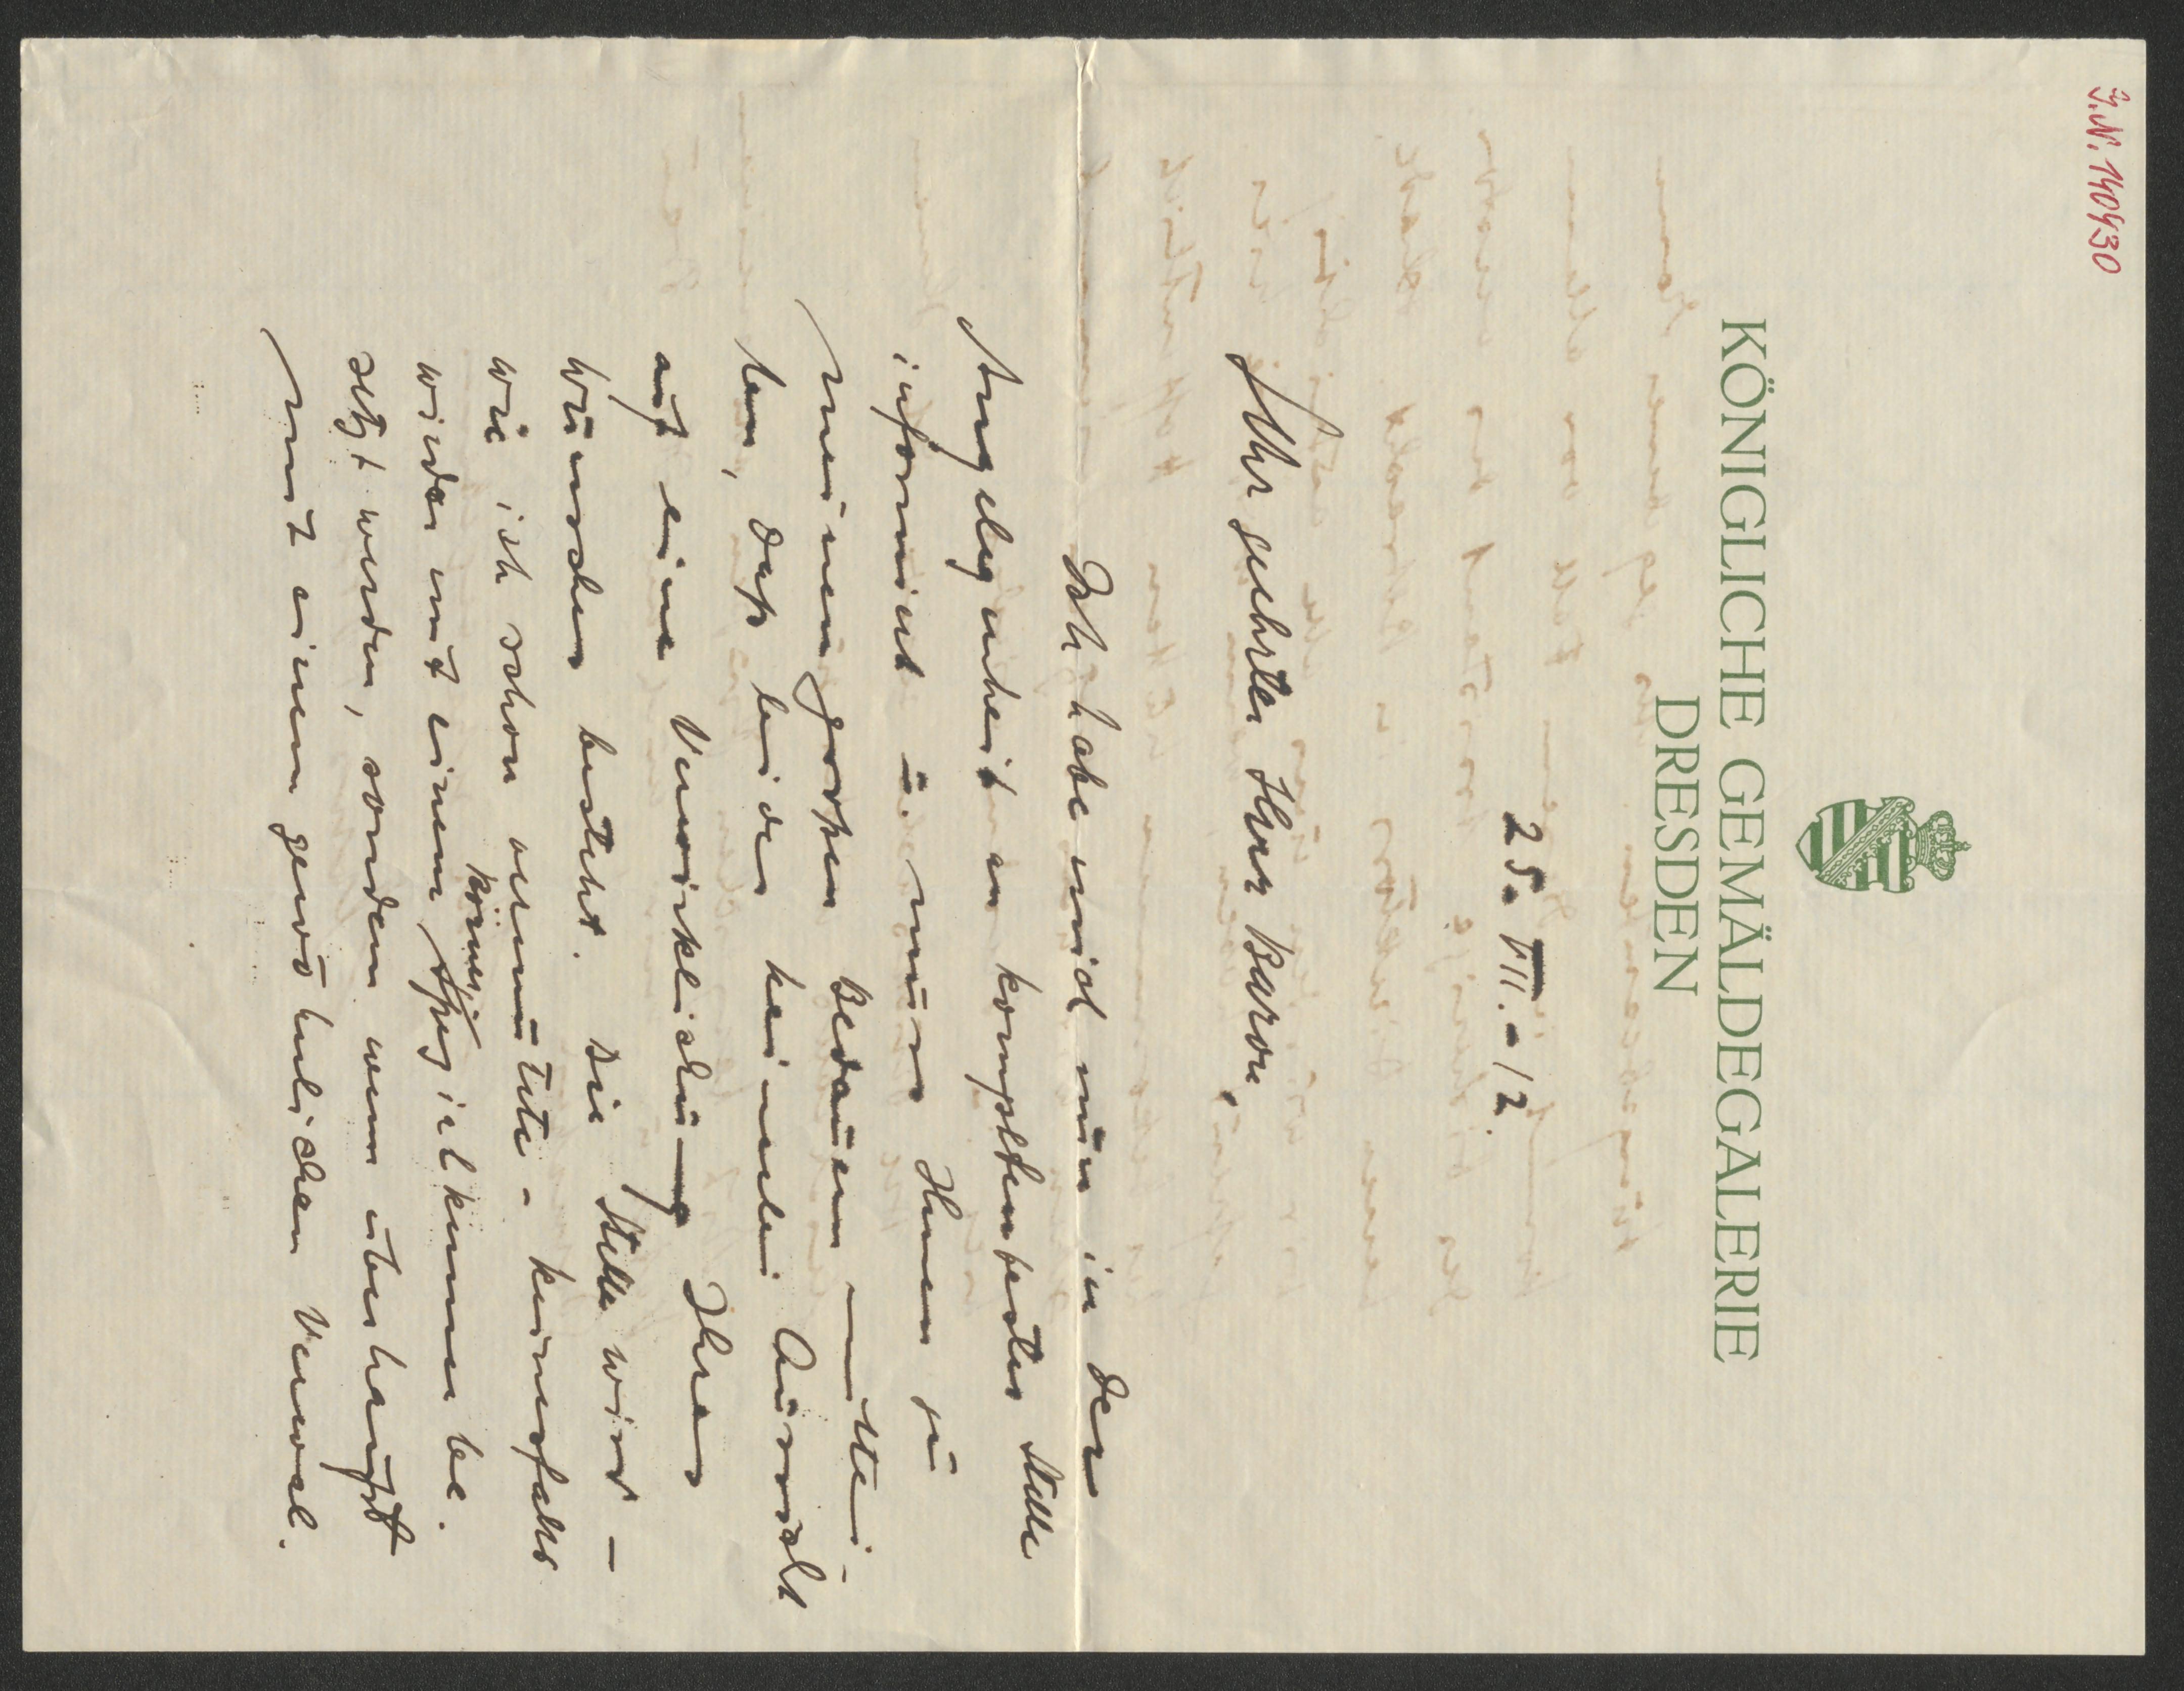 J.N. 140430
KÖNIGLICHE GEMÄLDEGALERIE
DRESDEN
25. VII. 12.
Sehr geehrter Herr Baron,
Ich habe mich nun in der
Angelegenheit an kompetentester Stelle
informiert u. muss Ihnen zu
meinem grossen Bedauern mittei-
len, dass leider keinerlei Aussicht
auf eine Verwirklichung Ihres
Wunsches besteht. Die Stelle wird –
wie ich schon vermutete – keinesfalls
wieder mit einem
können be-
setzt werden, sondern wenn überhaupt
mit einem gewöhnlichen Verwal-